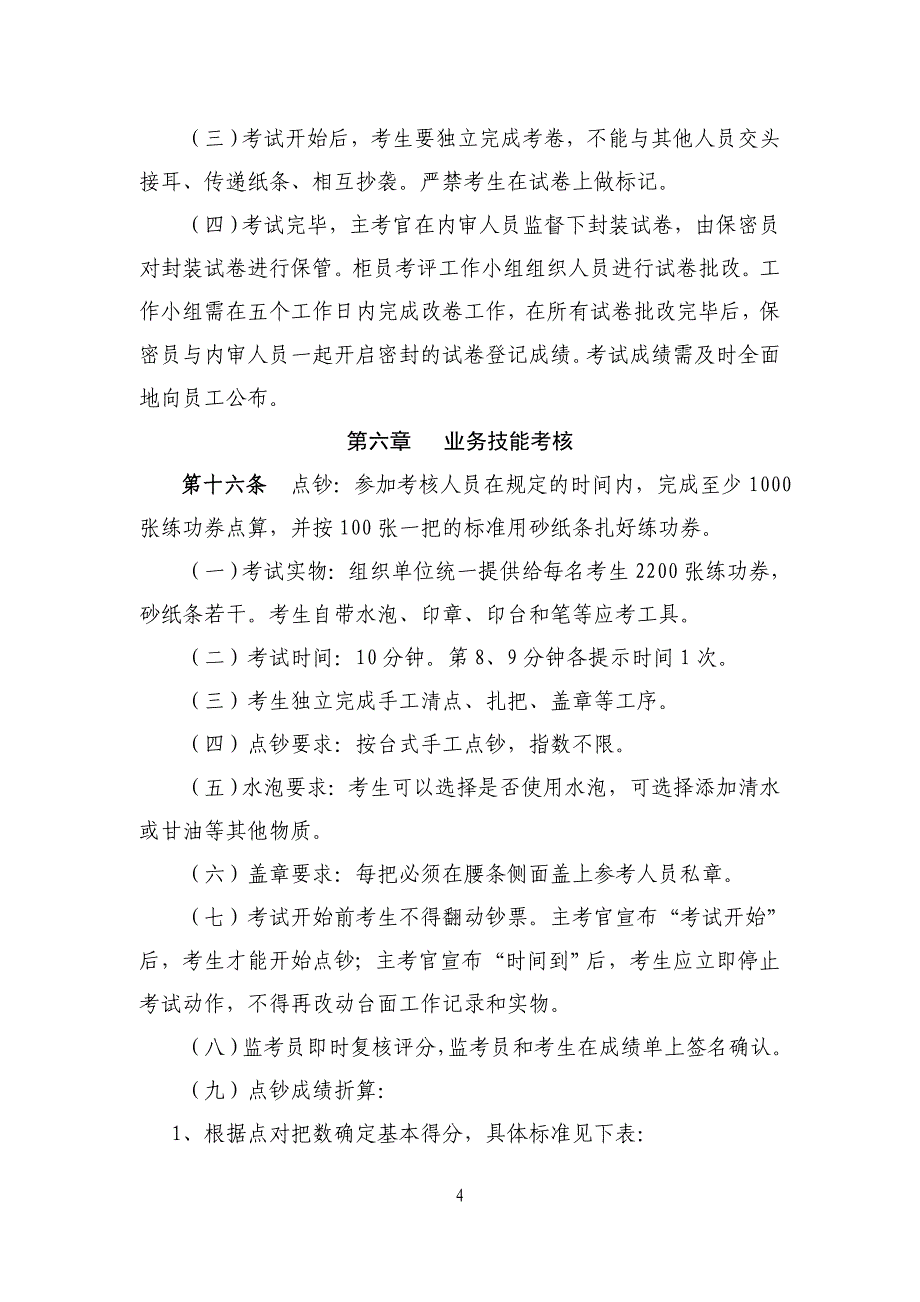 （三）考试开始后，考生要独立完成考卷，不能与其他人员交头
接耳、传递纸条、相互抄袭。严禁考生在试卷上做标记。
（四）考试完毕，主考官在内审人员监督下封装试卷，由保密员
对封装试卷进行保管。柜员考评工作小组组织人员进行试卷批改。工
作小组需在五个工作日内完成改卷工作，在所有试卷批改完毕后，保
密员与内审人员一起开启密封的试卷登记成绩。考试成绩需及时全面
地向员工公布。
第六章 业务技能考核
第十六条 点钞：参加考核人员在规定的时间内，完成至少 1000
张练功券点算，并按 100 张一把的标准用砂纸条扎好练功券。
（一）考试实物：组织单位统一提供给每名考生 2200 张练功券，
砂纸条若干。考生自带水泡、印章、印台和笔等应考工具。
（二）考试时间：10 分钟。第 8、9 分钟各提示时间 1 次。
（三）考生独立完成手工清点、扎把、盖章等工序。
（四）点钞要求：按台式手工点钞，指数不限。
（五）水泡要求：考生可以选择是否使用水泡，可选择添加清水
或甘油等其他物质。
（六）盖章要求：每把必须在腰条侧面盖上参考人员私章。
（七）考试开始前考生不得翻动钞票。主考官宣布“考试开始”
后，考生才能开始点钞；主考官宣布“时间到”后，考生应立即停止
考试动作，不得再改动台面工作记录和实物。
（八）监考员即时复核评分，监考员和考生在成绩单上签名确认。
（九）点钞成绩折算：
1、根据点对把数确定基本得分，具体标准见下表：
4